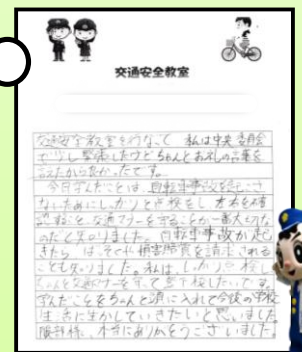 交通安全教室
交通安全教室を行なって 私は中央委員会
で少し緊張したけどちゃんとお礼の言葉を
言えたから良かったです。
今日学んだことは、自転車事故を起こさ
ないためにしっかりと点検をし
認すること、交通マナーを守ることが一番大切な
のだと知りました。自転車事故が起
きたら 損害賠償を請求される
ことも知りました。私は、しっかり点検し
ちゃんと交通マナーを守って
学んだことをちゃんと頭に入れて今後の学校
生活に生かしていきたいと思いました。
本当にありがとうございました。